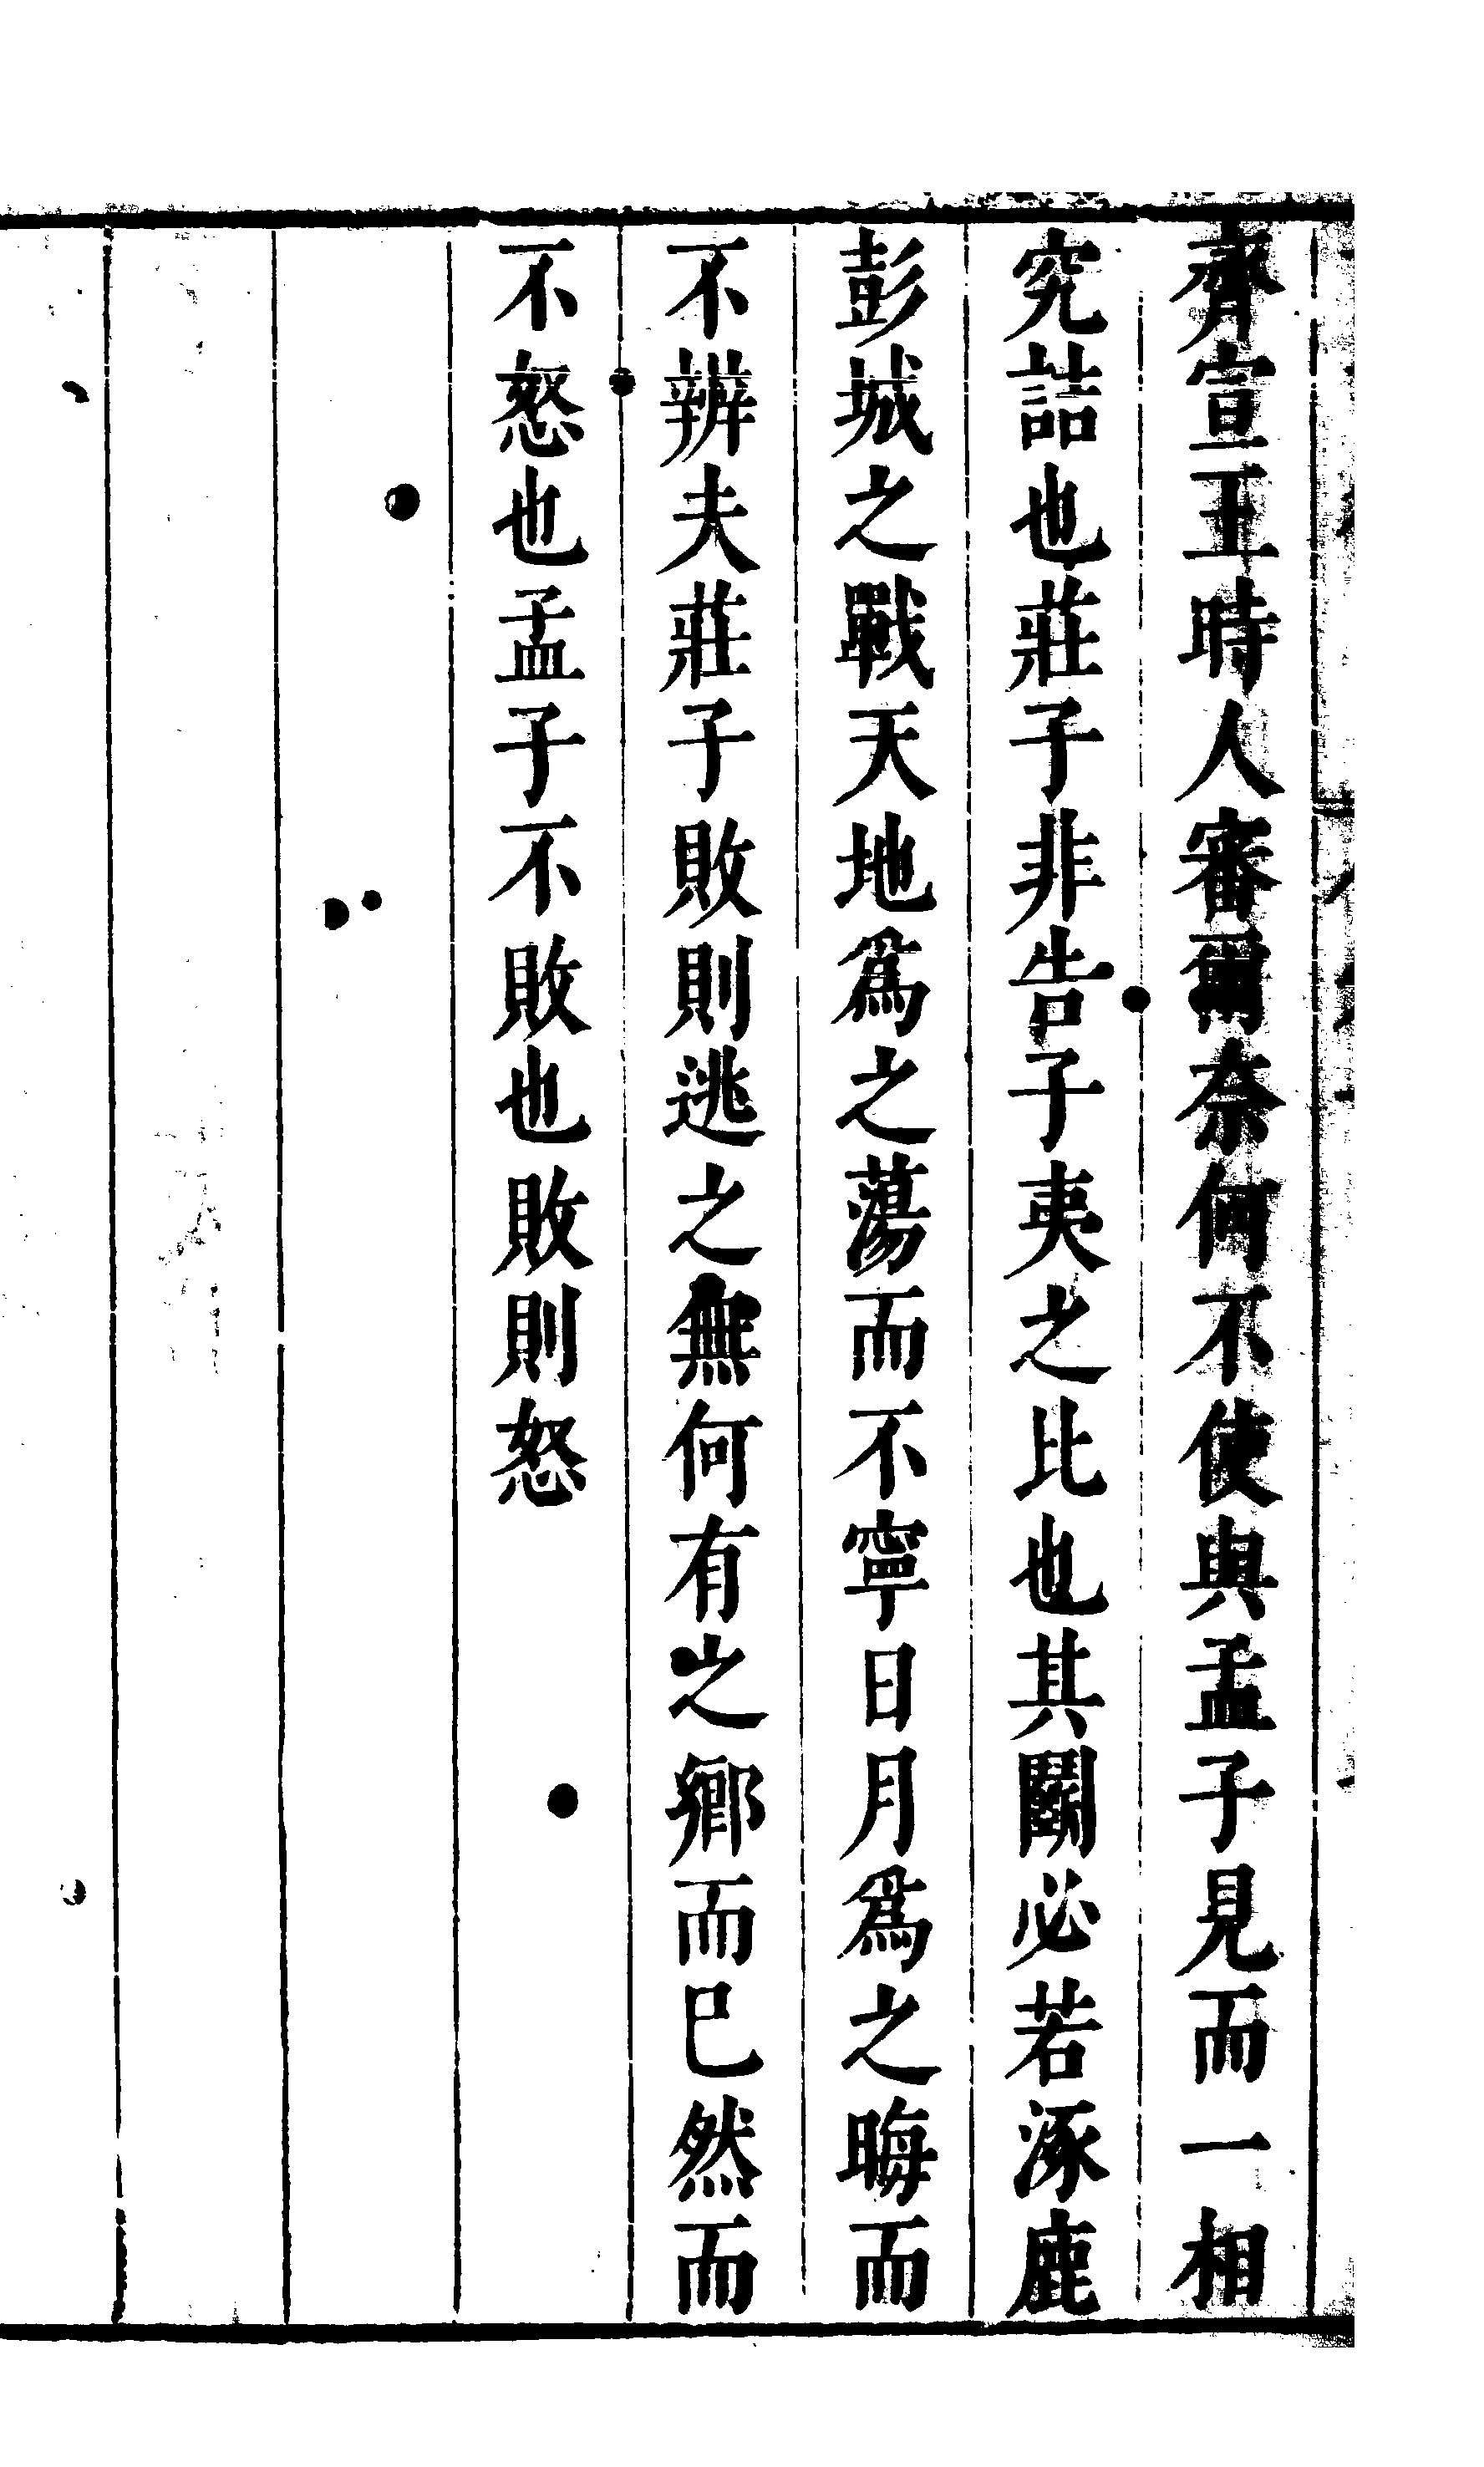 齊宣王時人審爾奈何不使與孟子見而一相
究詰也莊子非告子夷之比也其鬭必若涿鹿
彭城之戰天地爲之蕩而不寧日月爲之晦而
不辨夫莊子敗則逃之無何有之鄉而已然而
不怒也孟子不敗也敗則怒